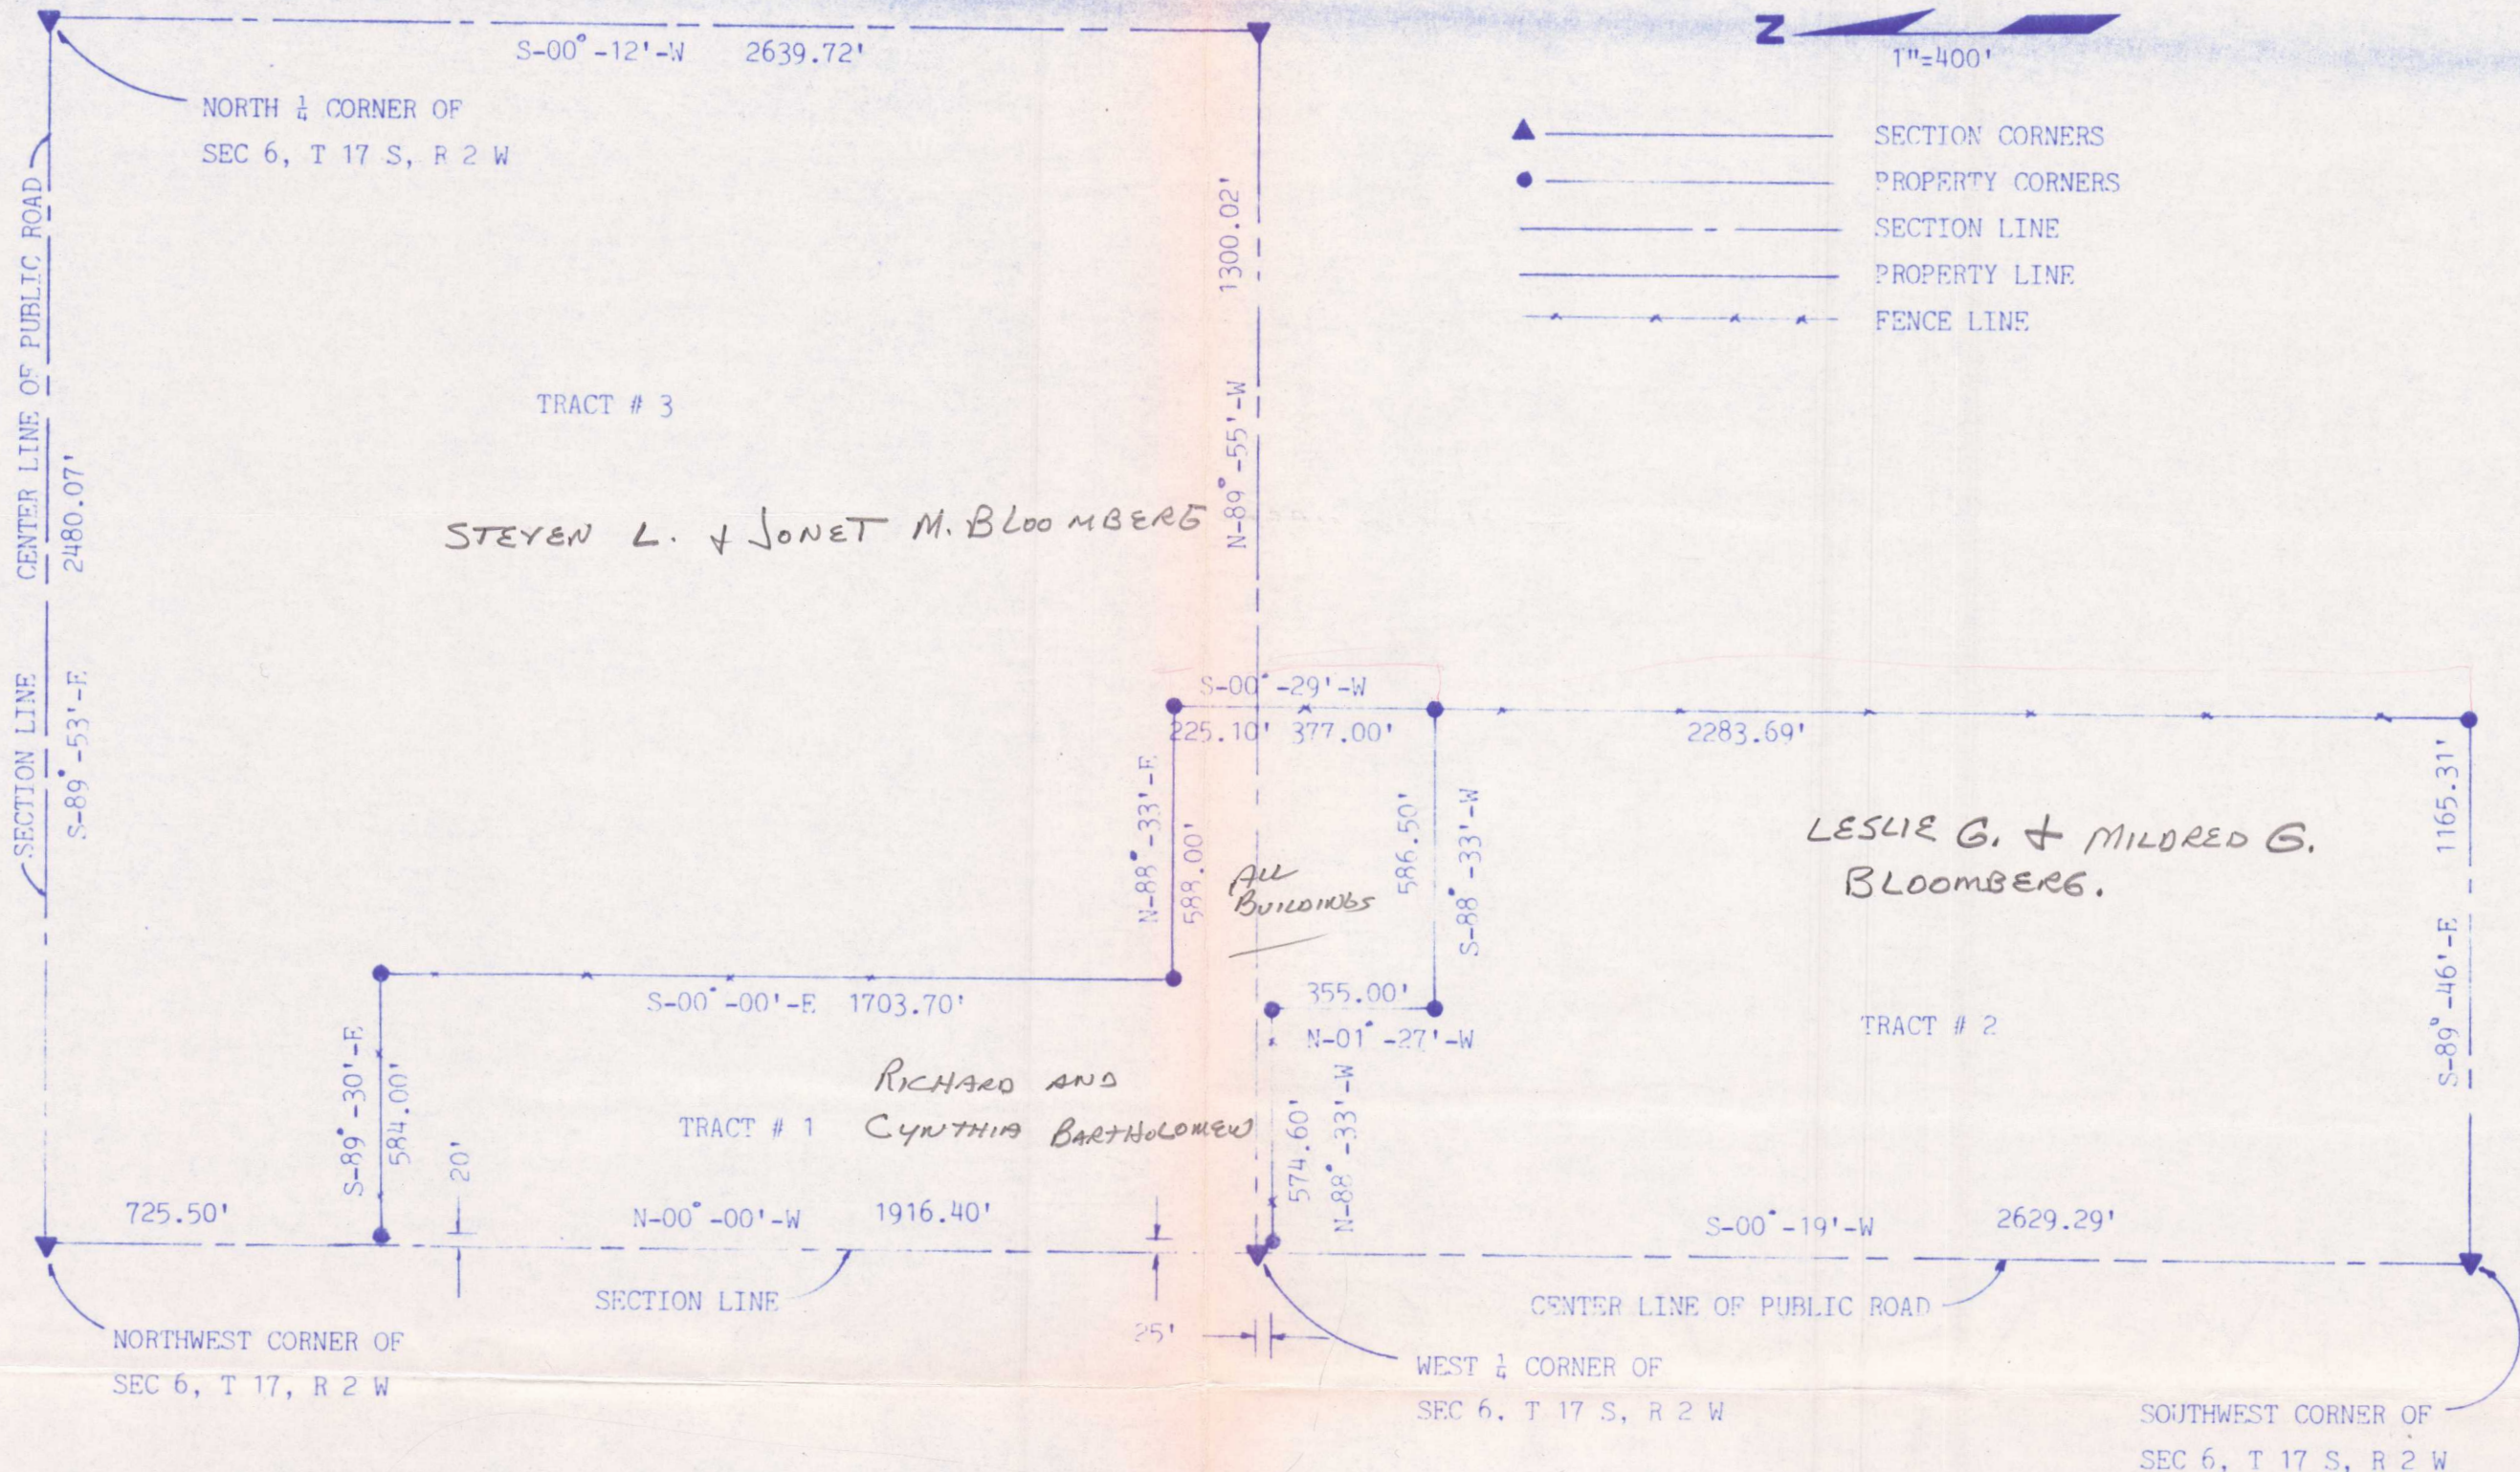 S-00°-12'-W 2639.72'
N
1"=400'
NORTH ¼ CORNER OF
SEC 6, T 17 S, R 2 W
SECTION CORNERS
PROPERTY CORNERS
SECTION LINE
PROPERTY LINE
FENCE LINE
SECTION LINE CENTER LINE OF PUBLIC ROAD
S-89°-53'-E 2480.07'
N-89°-55'-W 1300.02'
TRACT # 3
STEVEN L. & JONET M. BLOOMBERG
S-00°-29'-W
225.10' 377.00'
2283.69'
N-88°-33'-E
588.00'
ALL
BUILDINGS
586.50'
S-88°-33'-W
LESLIE G. & MILDRED G.
BLOOMBERG.
S-89°-46'-E 1165.31'
S-00°-00'-E 1703.70'
355.00'
N-01°-27'-W
TRACT # 2
S-89°-30'-E
584.00'
20'
RICHARD AND
TRACT # 1 CYNTHIA BARTHOLOMEW
574.60'
N-88°-33'-W
725.50'
N-00°-00'-W 1916.40'
S-00°-19'-W 2629.29'
SECTION LINE
CENTER LINE OF PUBLIC ROAD
25'
NORTHWEST CORNER OF
SEC 6, T 17, R 2 W
WEST ¼ CORNER OF
SEC 6. T 17 S, R 2 W
SOUTHWEST CORNER OF
SEC 6, T 17 S, R 2 W